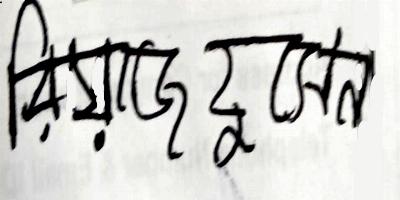 রিয়াজ হুসেন